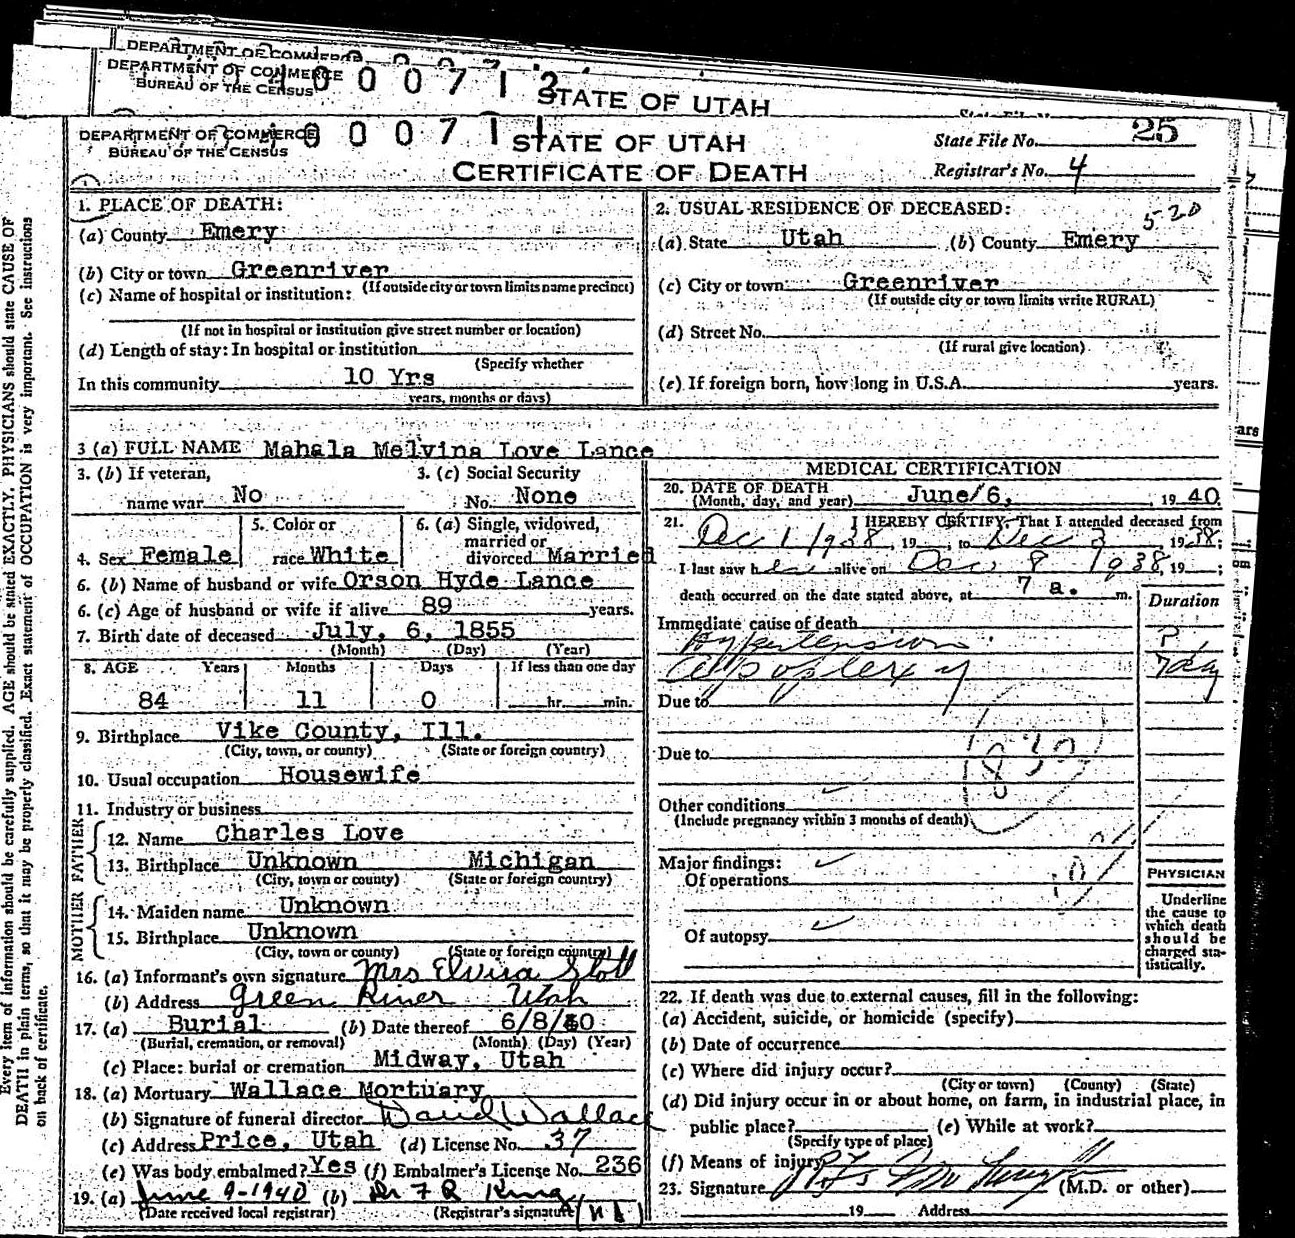 DEPARTMENT OF COMMERCE
DEPARTMENT OF COMMERCE
BUREAU OF THE CENSUS
0 0 0 7 1 2
STATE OF UTAH
DEPARTMENT OF COMMERCE
BUREAU OF THE CENSUS
0 0 0 7 1 1
STATE OF UTAH
CERTIFICATE OF DEATH
State File No. 25
Registrar's No. 4
Every item of information should be carefully supplied. AGE should be stated EXACTLY. PHYSICIANS should state CAUSE OF
DEATH in plain terms, so that it may be properly classified. Exact statement of OCCUPATION is very important. See instructions
on back of certificate.
1. PLACE OF DEATH:
(a) County Emery
(b) City or town Greenriver
(If outside city or town limits name precinct)
(c) Name of hospital or institution:
(If not in hospital or institution give street number or location)
(d) Length of stay: In hospital or institution
(Specify whether
In this community 10 Yrs
years, months or days)
2. USUAL RESIDENCE OF DECEASED:
5-20
(a) State Utah (b) County Emery
(c) City or town Greenriver
(If outside city or town limits write RURAL)
(d) Street No.
(If rural give location)
(e) If foreign born, how long in U.S.A. years.
3 (a) FULL NAME Mahala Melvina Love Lance
3. (b) If veteran,
name war No
3. (c) Social Security
No. None
4. Sex Female
5. Color or
race White
6. (a) Single, widowed,
married or
divorced Married
6. (b) Name of husband or wife Orson Hyde Lance
6. (c) Age of husband or wife if alive 89 years.
7. Birth date of deceased July, 6, 1855
(Month) (Day) (Year)
8. AGE Years Months Days If less than one day
84 11 0 hr. min.
9. Birthplace Vike County, Ill.
(City, town, or county) (State or foreign country)
10. Usual occupation Housewife
11. Industry or business
FATHER
12. Name Charles Love
13. Birthplace Unknown Michigan
(City, town or county) (State or foreign country)
MOTHER
14. Maiden name Unknown
15. Birthplace Unknown
(City, town or county) (State or foreign country)
16. (a) Informant's own signature Mrs Elvira Stoll
(b) Address Green River Utah
17. (a) Burial (b) Date thereof 6/8/40
(Burial, cremation, or removal) (Month) (Day) (Year)
(c) Place: burial or cremation Midway, Utah
18. (a) Mortuary Wallace Mortuary
(b) Signature of funeral director David Wallace
(c) Address Price, Utah (d) License No. 37
(e) Was body embalmed? Yes (f) Embalmer's License No. 236
19. (a) June 9-1940 (b) Dr F R King
(Date received local registrar) (Registrar's signature)
MEDICAL CERTIFICATION
20. DATE OF DEATH
(Month, day, and year) June/6, 19 40
21. I HEREBY CERTIFY, That I attended deceased from
Dec 1/1938, 19 , to Dec 1938;
I last saw h alive on Dec 8 1938, 19 ;
death occurred on the date stated above, at 7 a. m.
Duration
Immediate cause of death
Hypertension
Appoplexy 7 day
Due to
Due to
830
Other conditions
(Include pregnancy within 3 months of death)
Major findings:
Of operations
Of autopsy
PHYSICIAN
Underline
the cause to
which death
should be
charged sta-
tistically.
22. If death was due to external causes, fill in the following:
(a) Accident, suicide, or homicide (specify)
(b) Date of occurrence
(c) Where did injury occur?
(City or town) (County) (State)
(d) Did injury occur in or about home, on farm, in industrial place, in
public place? (e) While at work?
(Specify type of place)
(f) Means of injury
23. Signature (M.D. or other)
19 Address